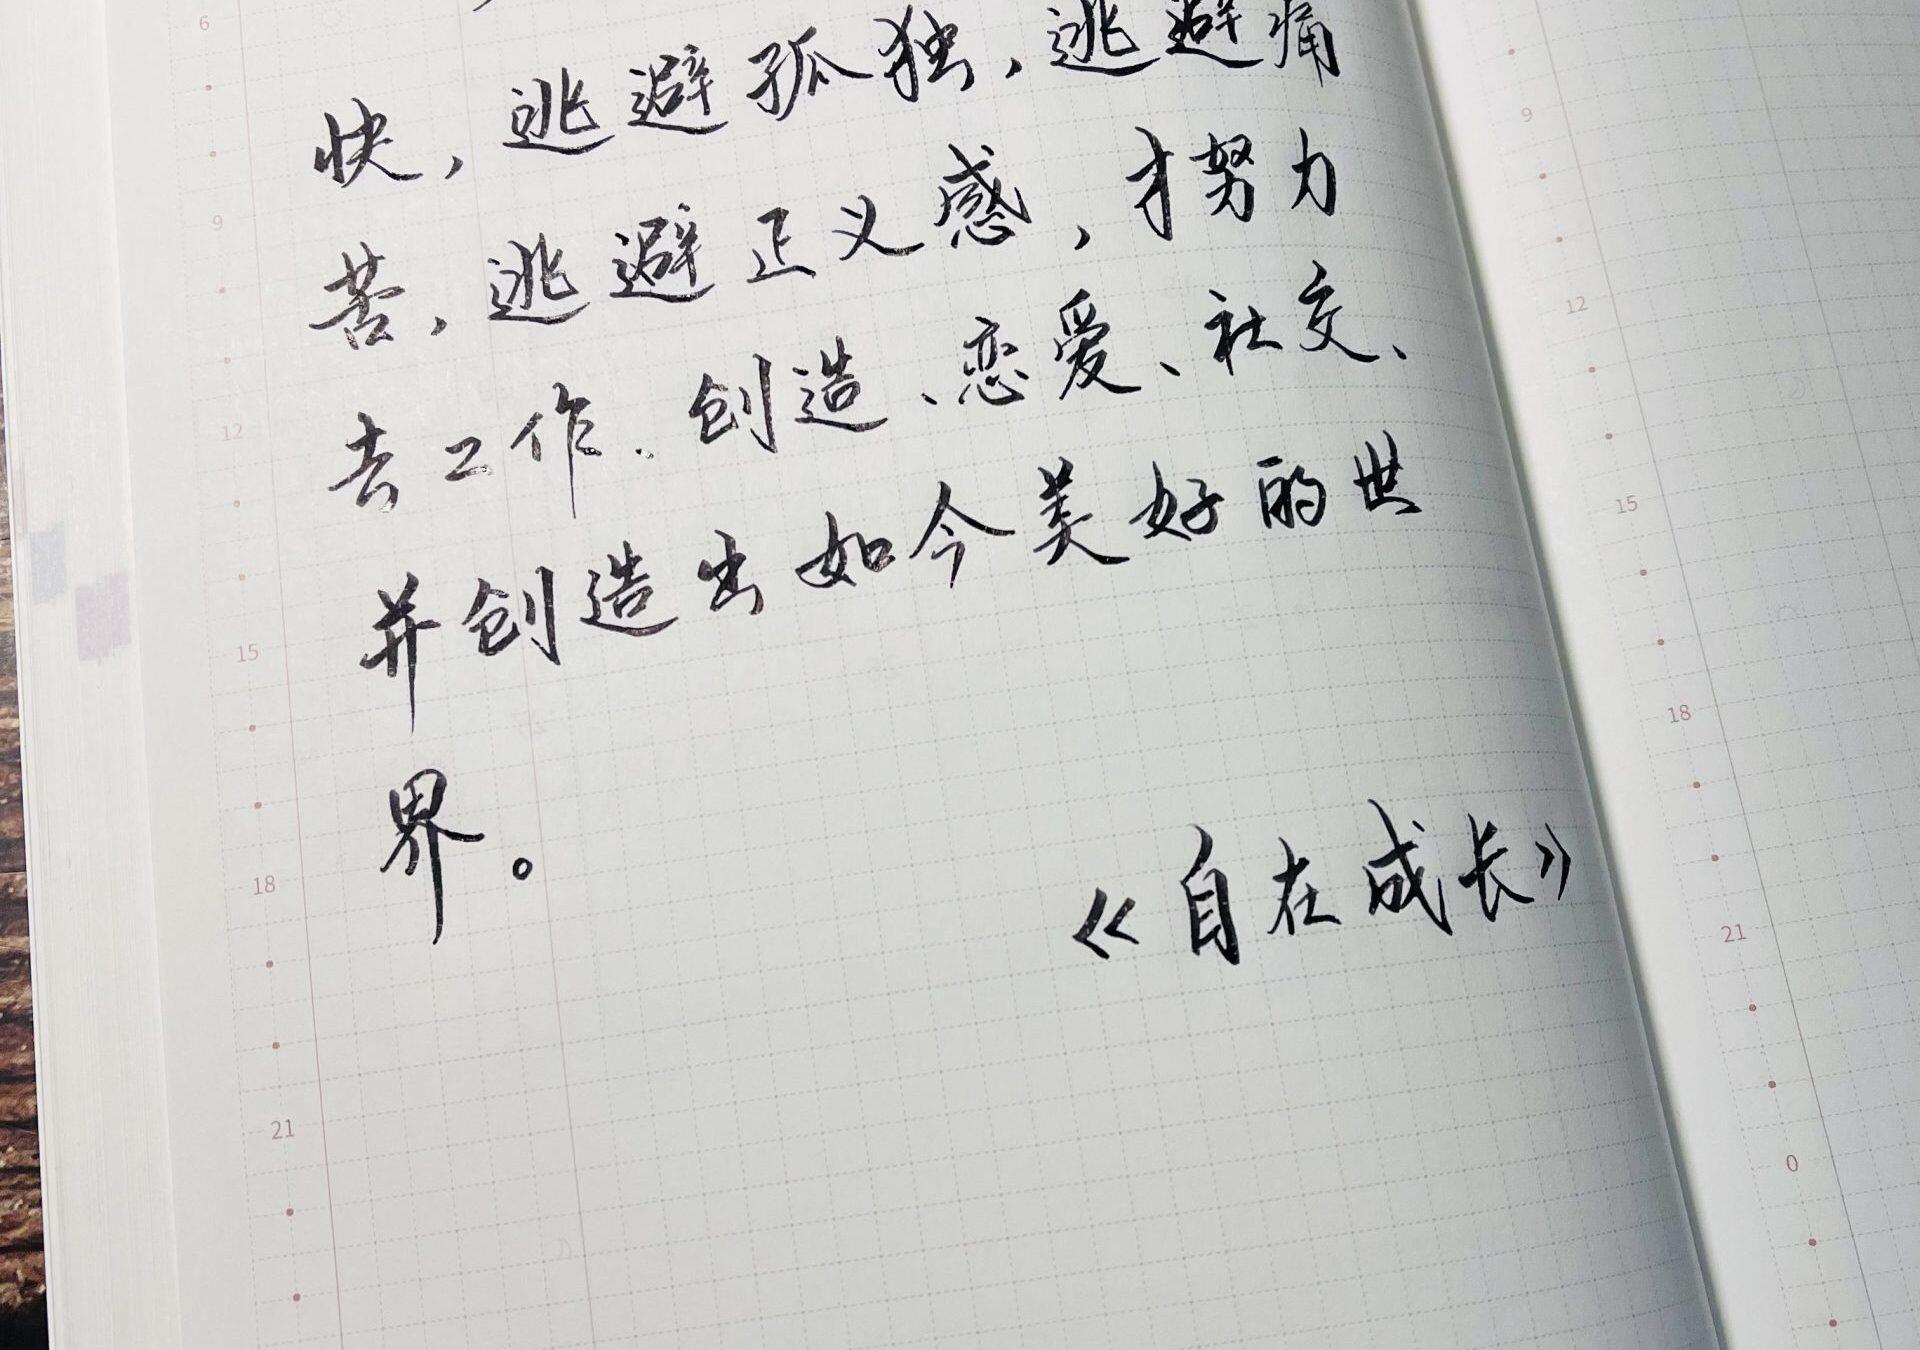 快，逃避孤独，逃避痛
苦，逃避正义感，才努力
去工作、创造、恋爱、社交、
并创造出如今美好的世
界。
《自在成长》
6
9
12
15
18
21
9
12
15
18
21
0